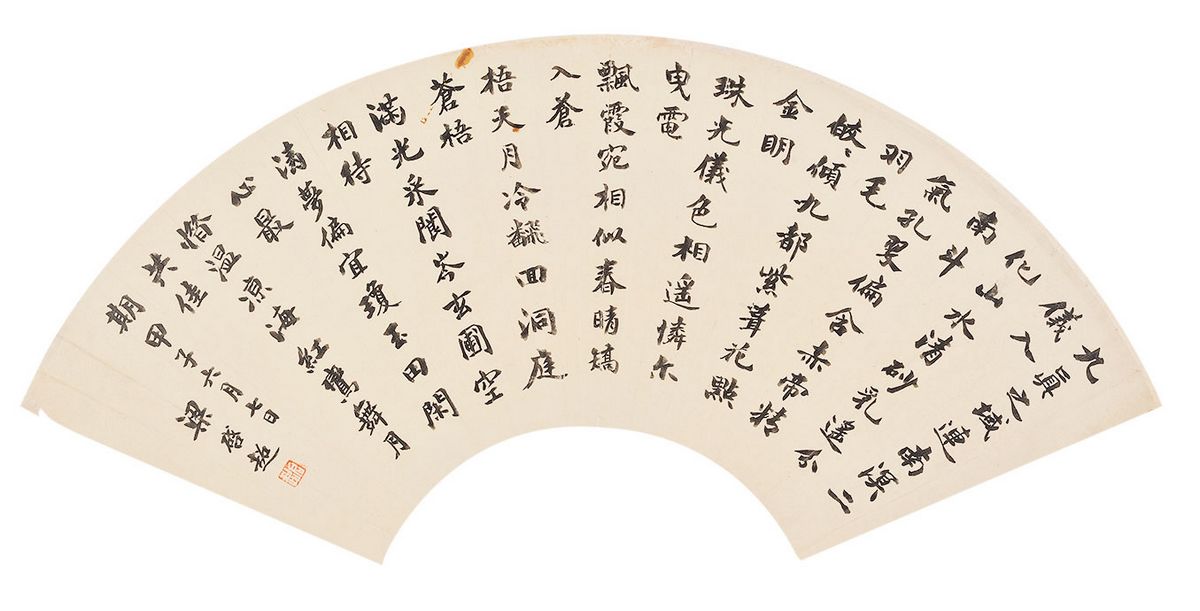 九真之域連南溟二
儀入
化山水清砂乳遙分
南斗
氣孔翠偏含赤帝精
羽毛
皎皎傾九都紫葺花點
金明
珠光儀色相遙憐尔
曳電
飄霞宛相似春晴矯
入蒼
梧天月冷飜回洞庭
蒼梧
滿光采閬岑玄圃空
相待
滿夢偏宜瓊玉田閑
心最
愔溫涼海紅鸞舞月
共佳
期
甲子六月七日
梁啓超